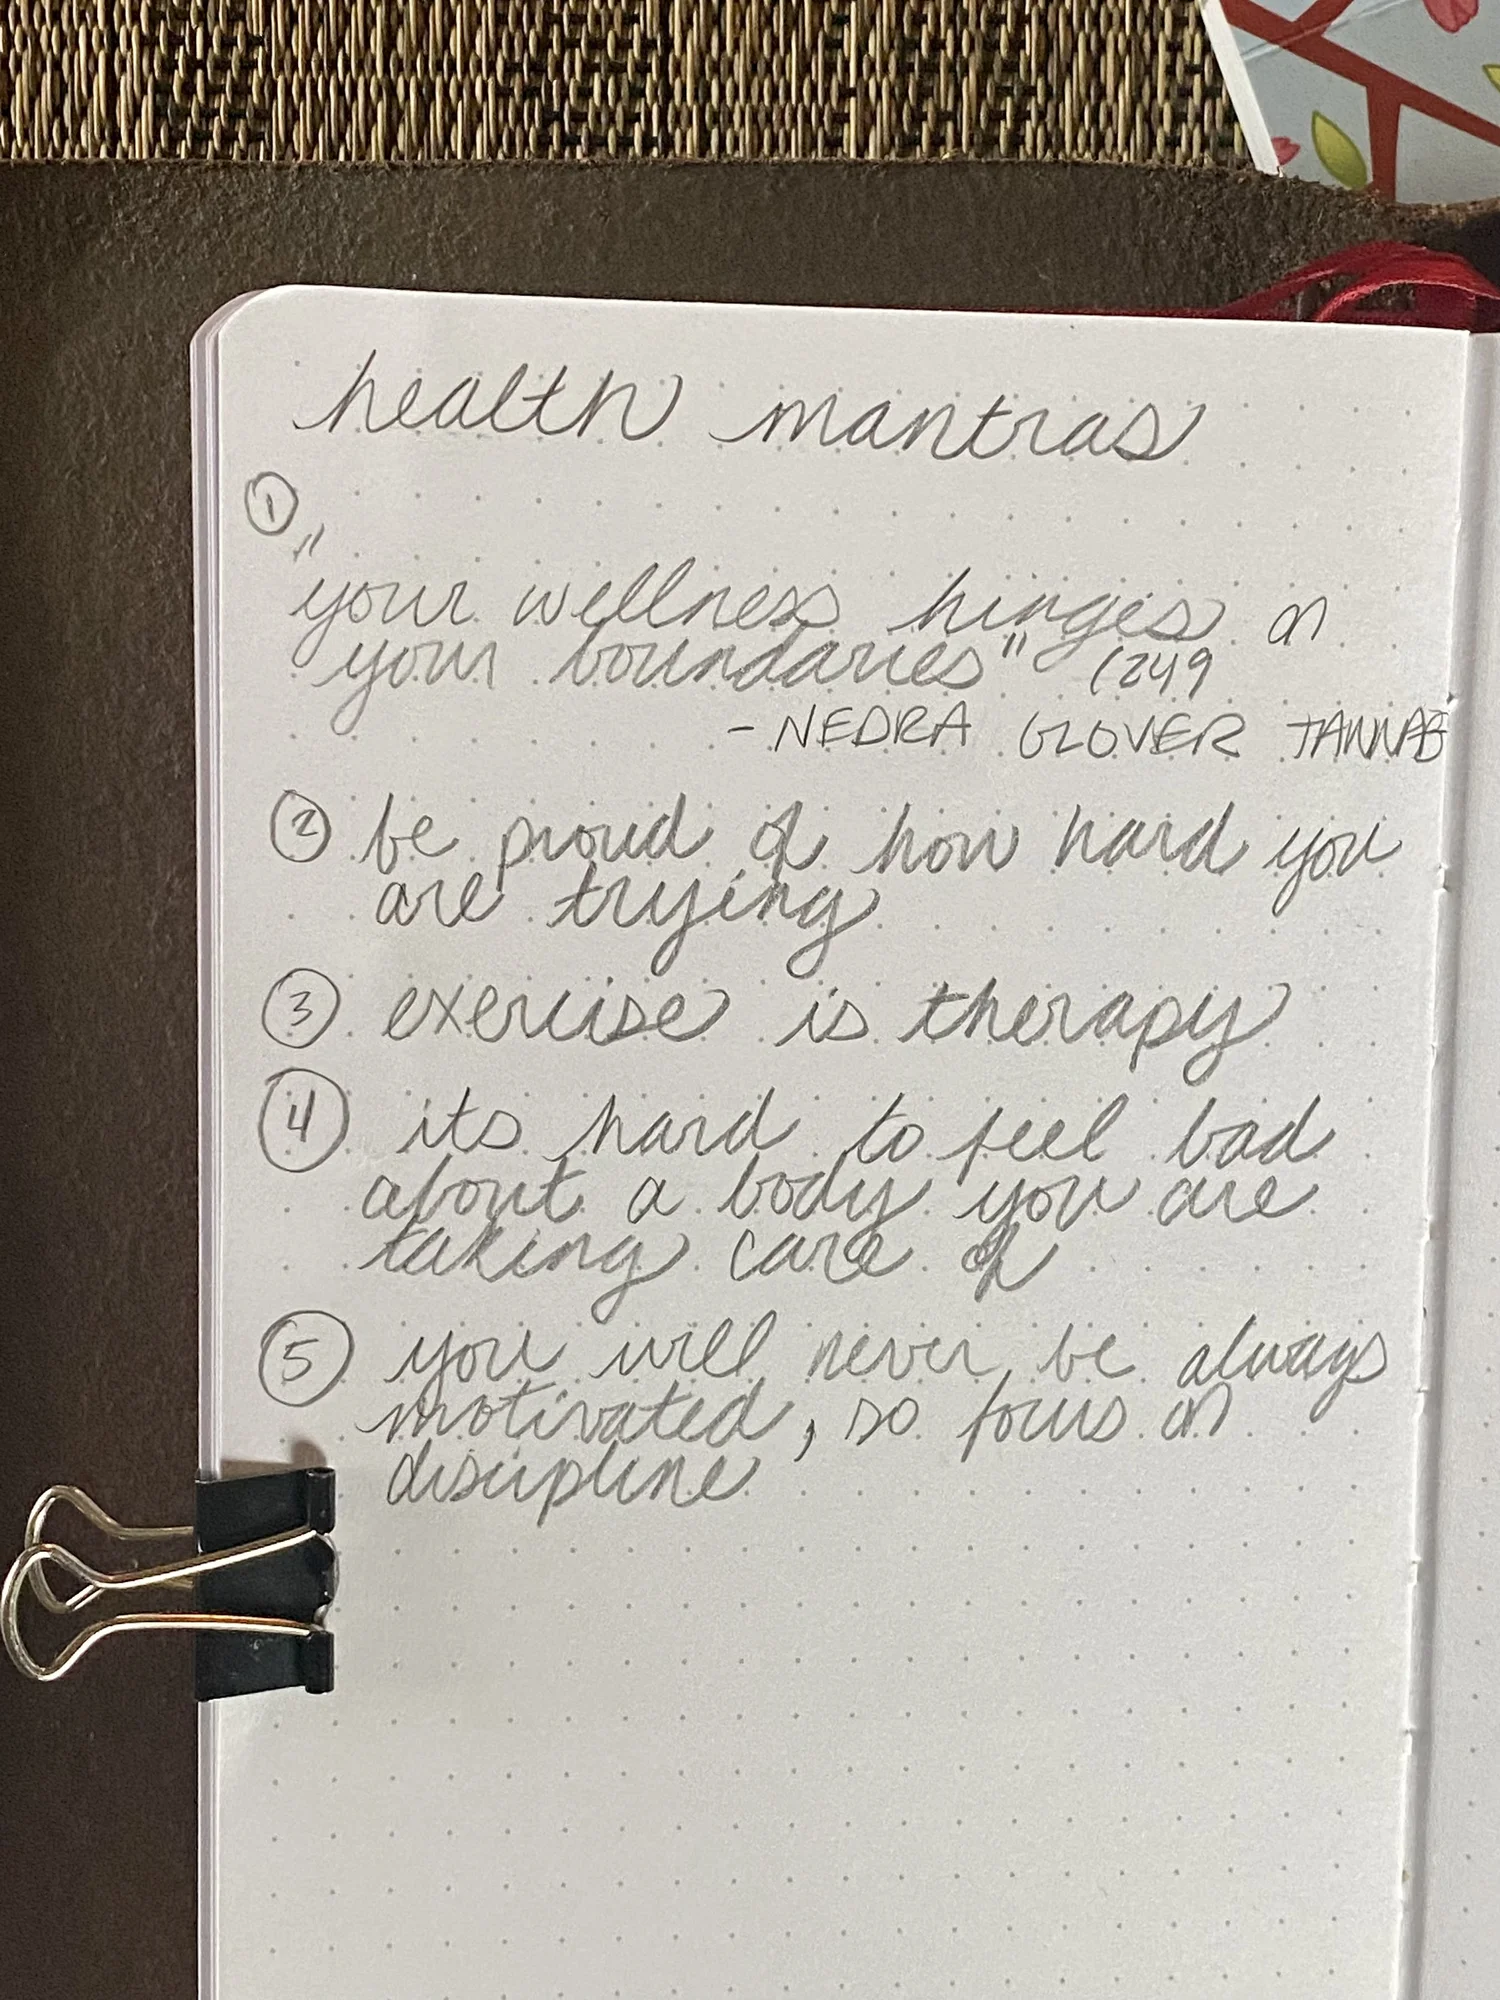 health mantras
①
"your wellness hinges on
your boundaries" (249
- NEDRA GLOVER TAWWAB
② be proud of how hard you
are trying
③ exercise is therapy
④ its hard to feel bad
about a body you are
taking care of
⑤ you will never be always
motivated, so focus on
discipline